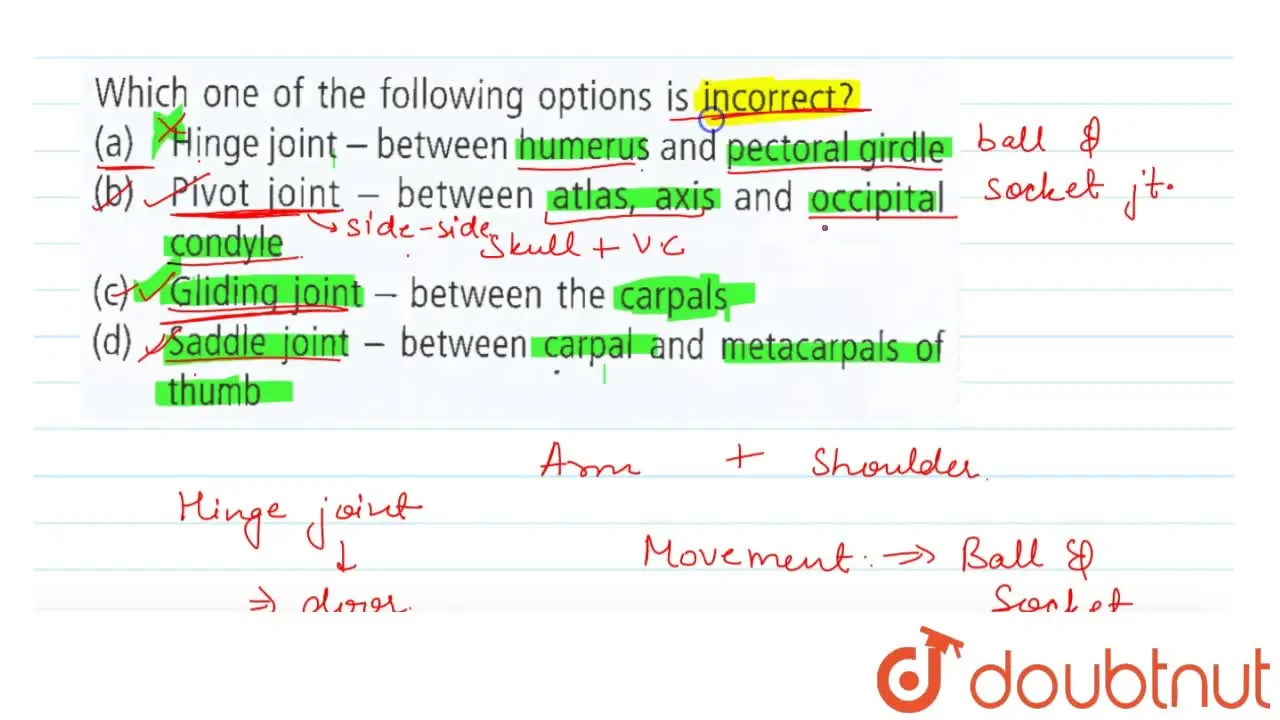 Which one of the following options is incorrect?
(a) Hinge joint – between humerus and pectoral girdle
ball &
(b) Pivot joint – between atlas, axis and occipital
socket jt.
condyle
side-side
Skull + V.C
(c) Gliding joint – between the carpals
(d) Saddle joint – between carpal and metacarpals of
thumb
Arm + Shoulder
Hinge joint
↓
Movement : ⇒ Ball &
⇒ door
Socket
doubtnut